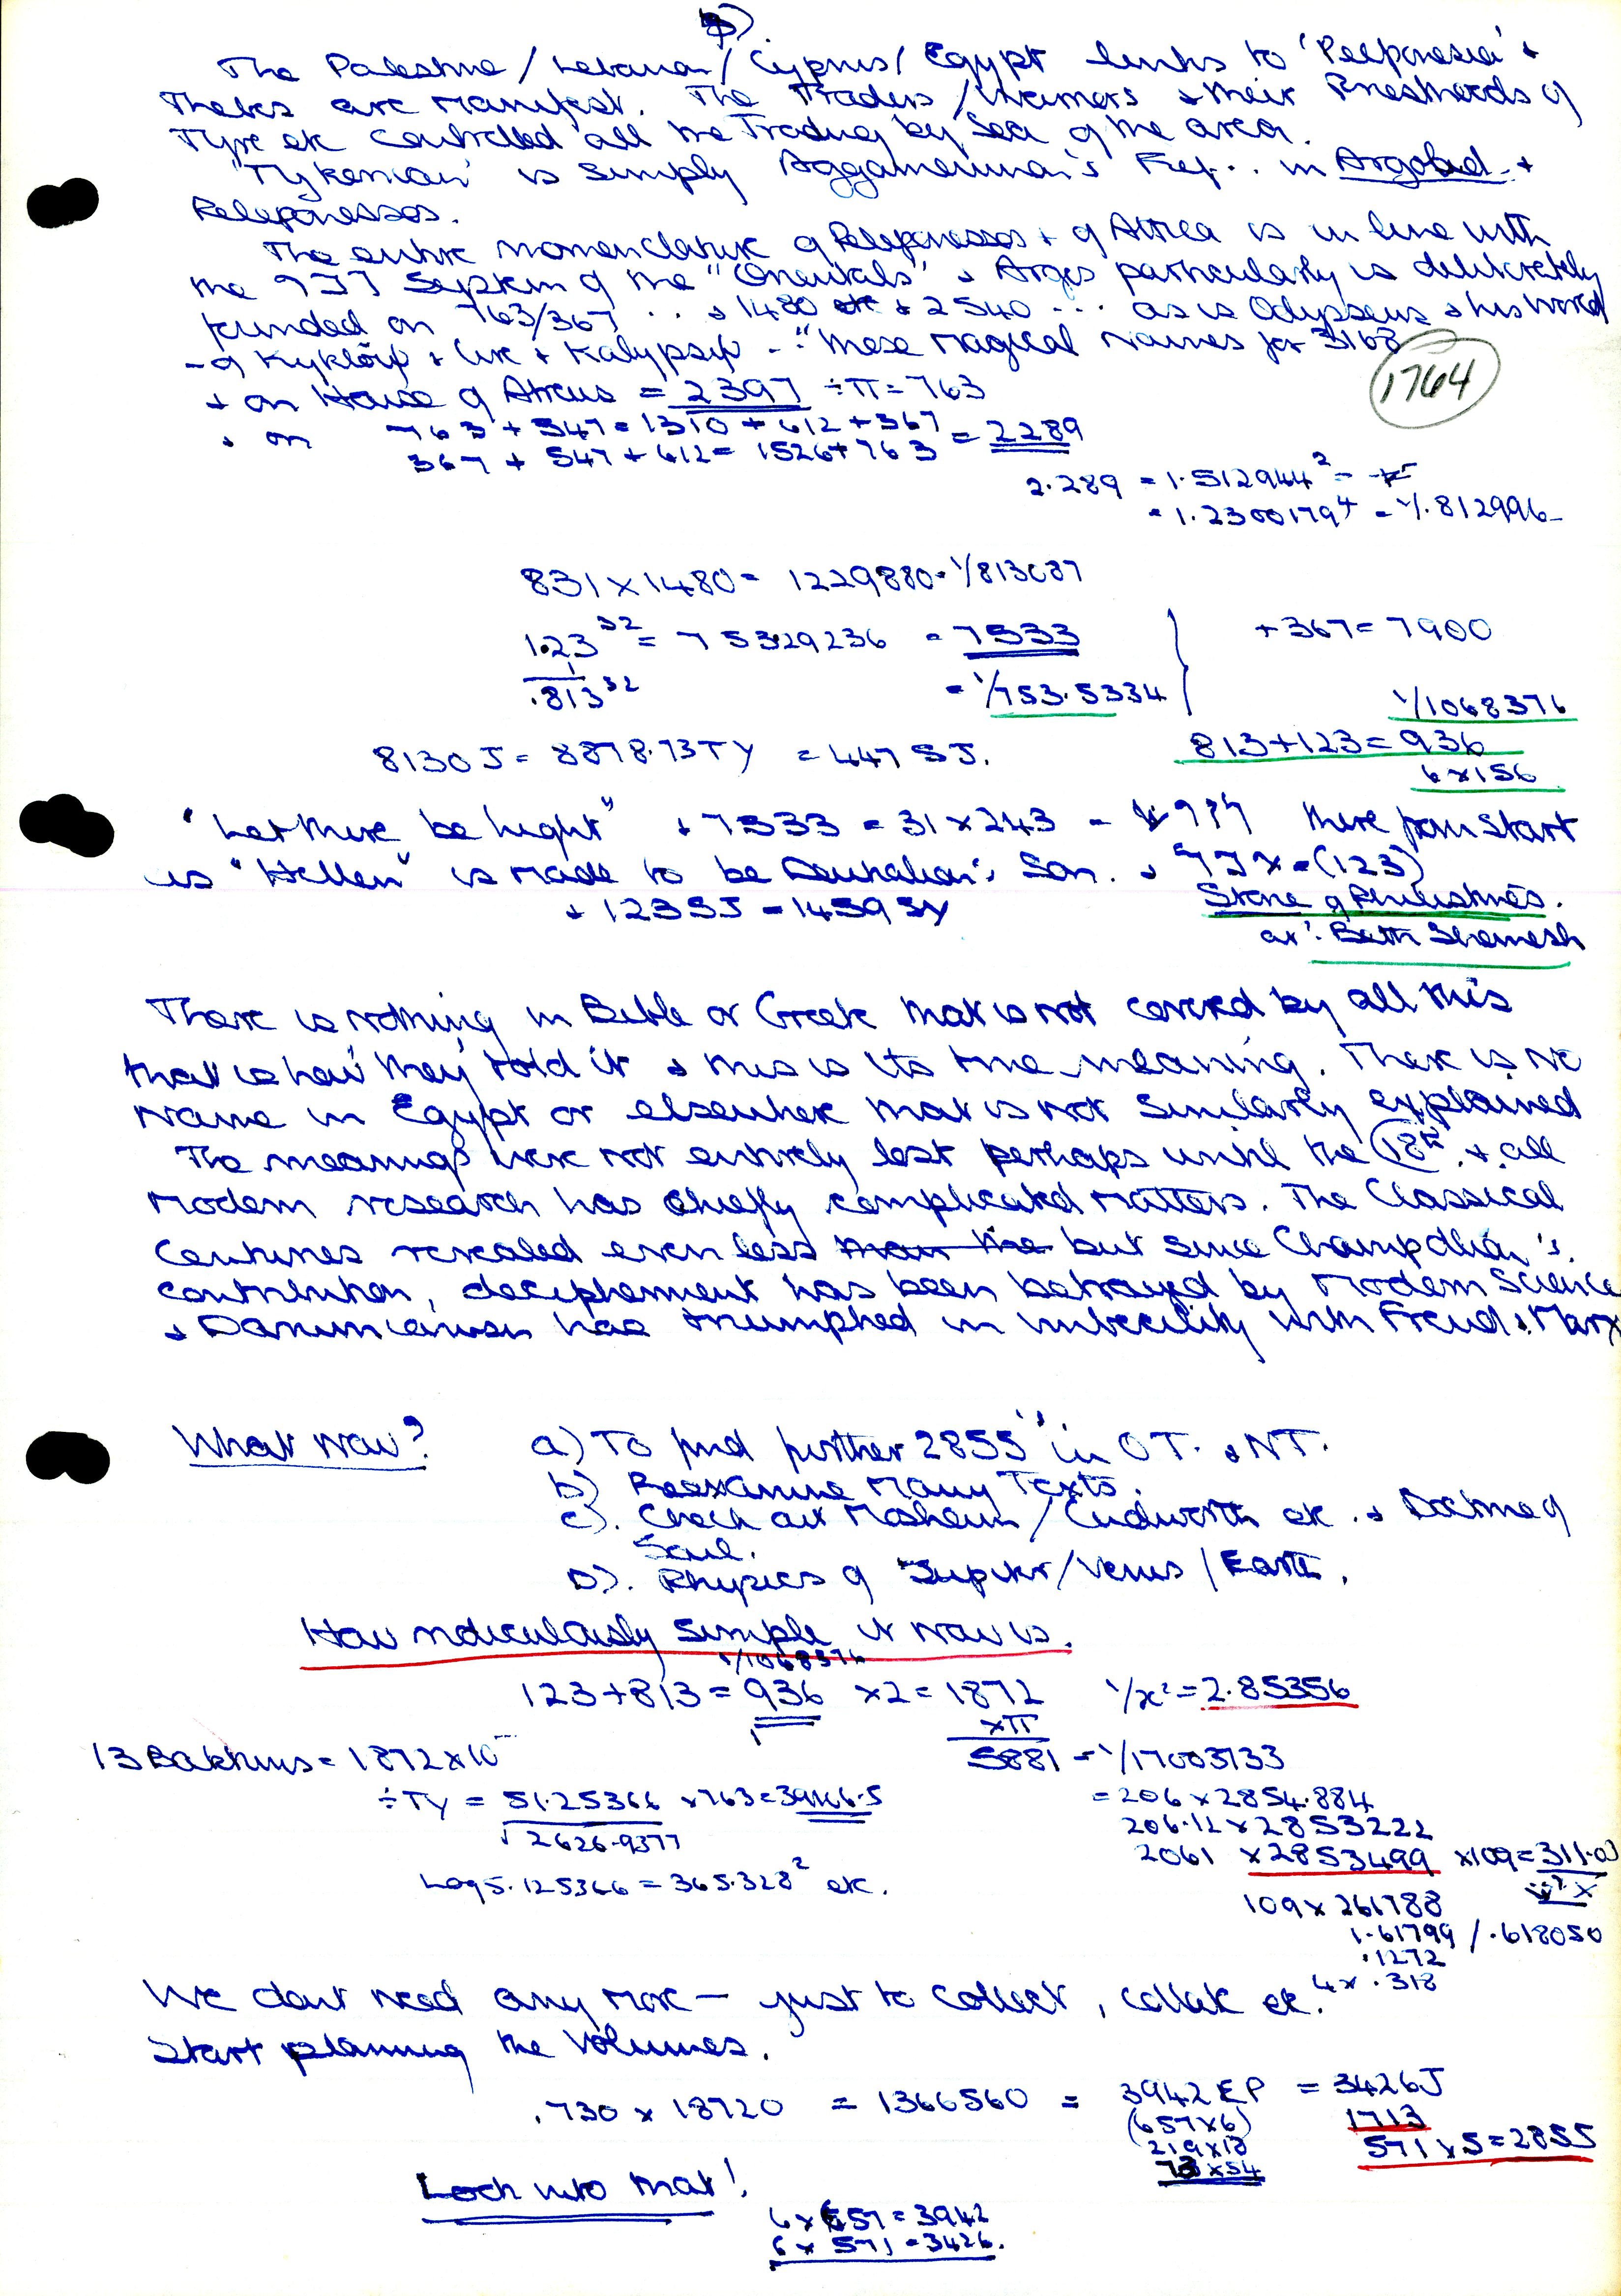 The Palestine / Lebanon / Cyprus / Egypt links to 'Pelponesia' +
Thebes are manifest. The Traders / & their Priesthoods of
Tyre etc controlled all the Trading by Sea of the area.
"Mykenian" is simply Aggamemnon's Pref... in Argolid +
Peleponessos.
The entire nomenclature of Peleponessos + of Attica is in line with
the 977 System of the "Orientals" & Argos particularly is deliberately
founded on 763/367 .. & 1480 etc & 2540 ... as is Odysseus & his World
- of Kyklops + Circe + Kalypso - "these magical names for 3168
1764
+ on House of Atreus = 2397 ÷ π = 763
+ on 763 + 547 = 1310 + 612 + 367
367 + 547 + 612 = 1526 + 763 = 2289
2.289 = 1.512944² =
= 1.2300179⁴ = 1/.812996
831 x 1480 = 1229880 = 1/813087
1.23³² = 75329236 = 7533
+ 367 = 7900
1/.813³² = 1/753.5334
1/1068376
8130J = 8878.73TY = 447 SJ.
813 + 123 = 936
6 x 156
"Let there be Light" + 7533 = 31 x 243 = there from start
as "Hellen" is made to be Deukalion's Son. & = (123)
+ 123SJ = 1459SY
Stone of Philistines.
at: Beth Shemesh
There is nothing in Bible or Greek that is not covered by all this
that is how 'they' told it & this is its true meaning. There is no
name in Egypt or elsewhere that is not similarly explained
The meanings were not entirely lost perhaps until the 18th. & all
modern research has chiefly complicated matters. The Classical
Centuries revealed even less than the but since Champollion's
contribution, decipherment has been betrayed by Modern Science
& Darwinianism has triumphed in imbecility with Freud & Marx
What now? a) To find further 2855" in OT. & NT.
b) Reexamine Many Texts.
c). Check out Mosheim / Cudworth etc. & Doctrine of
Soul.
D). Physics of Jupiter / Venus / Earth.
How ridiculously simple it now is.
1/1068376
123 + 813 = 936 x 2 = 1872 1/x² = 2.85356
xπ
13 Bakhtuns = 1872 x 10 5881 = 1/17003733
÷ TY = 51.25366 x 763 = 39106.5 = 206 x 2854.884
√2626.9377 206.12 x 2853222
2061 x 2853499 x 109 = 311.03
Log 5.125366 = 365.328² etc.
109 x 261788
1.61799 / .618050
.1272
4 x .318
We dont need any more - just to collect, collate etc.
Start planning the Volumes.
.730 x 18720 = 1366560 = 3942 EP = 3426J
(657 x 6) 1713
219 x 18 571 x 5 = 2855
73 x 54
Look into that!
6 x 657 = 3942
6 x 571 = 3426.